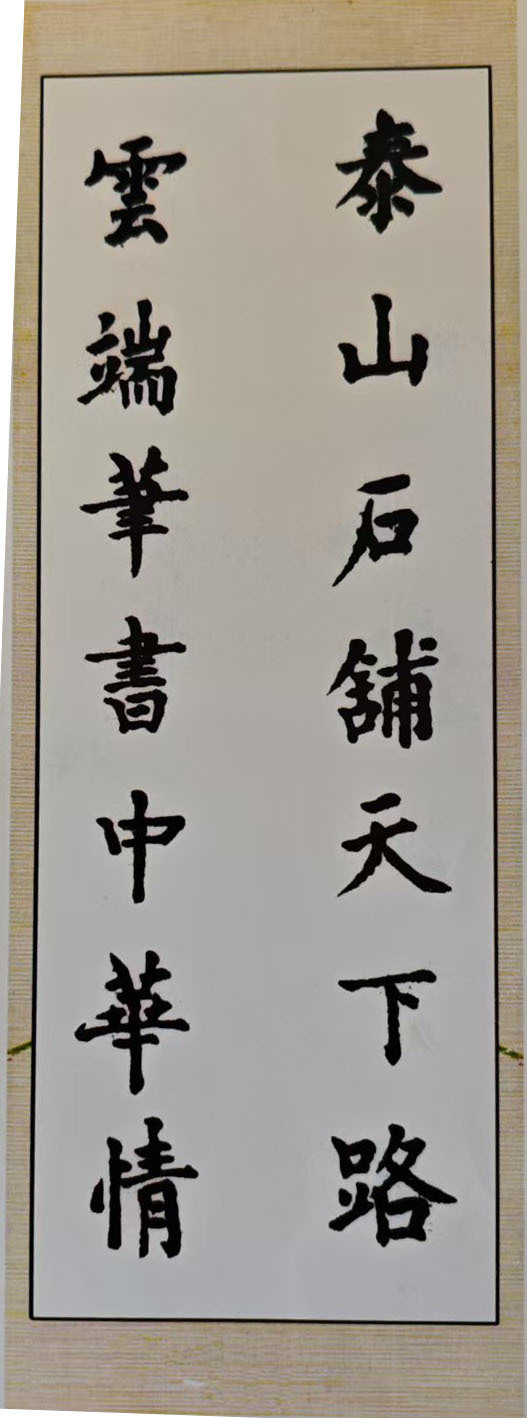 泰山石舖天下路
雲端筆書中華情